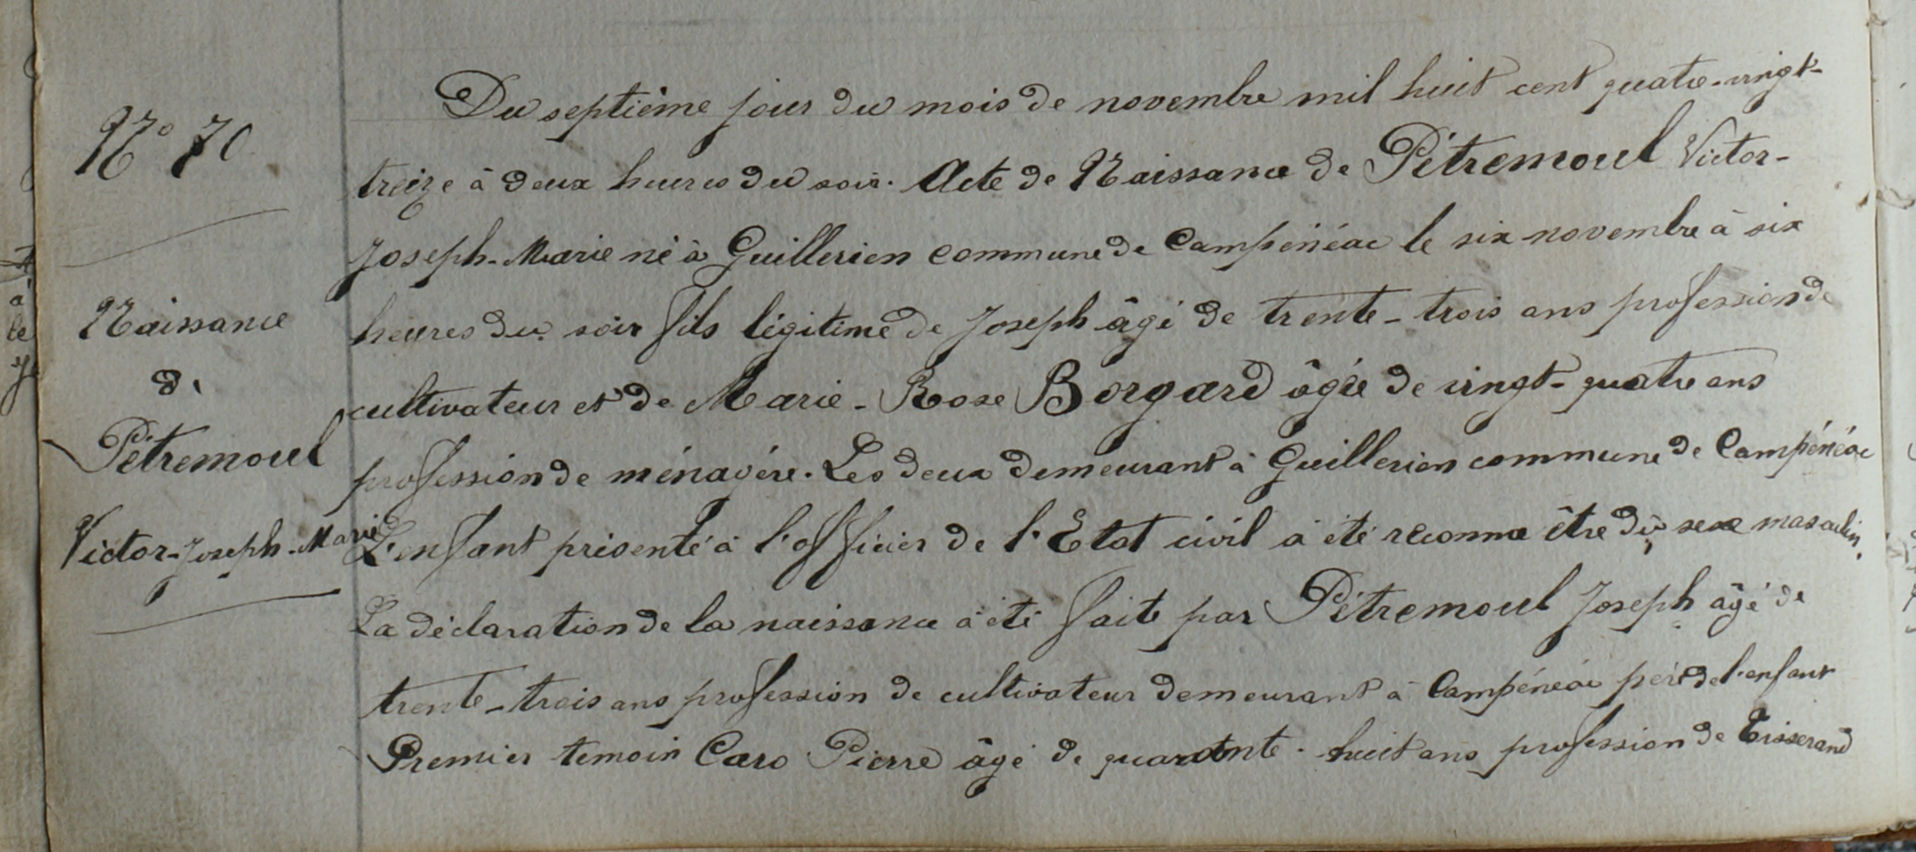 N° 70
Naissance
de
Pétremoul
Victor-Joseph-Marie
Du septième jour du mois de novembre mil huit cent quatre-vingt-
treize à deux heures du soir. Acte de Naissance de Pétremoul Victor-
Joseph-Marie né à Guillerien commune de Campénéac le six novembre à six
heures du soir fils légitime de Joseph âgé de trente-trois ans profession de
cultivateur et de Marie-Rose Borgard âgée de vingt-quatre ans
profession de ménagère. Les deux demeurant à Guillerien commune de Campénéac
L'enfant présenté à l'officier de l'Etat civil a été reconnu être du sexe masculin.
La déclaration de la naissance a été faite par Pétremoul Joseph âgé de
trente-trois ans profession de cultivateur demeurant à Campénéac père de l'enfant
Premier temoin Caro Pierre âgé de quarante-huit ans profession de Tisserand